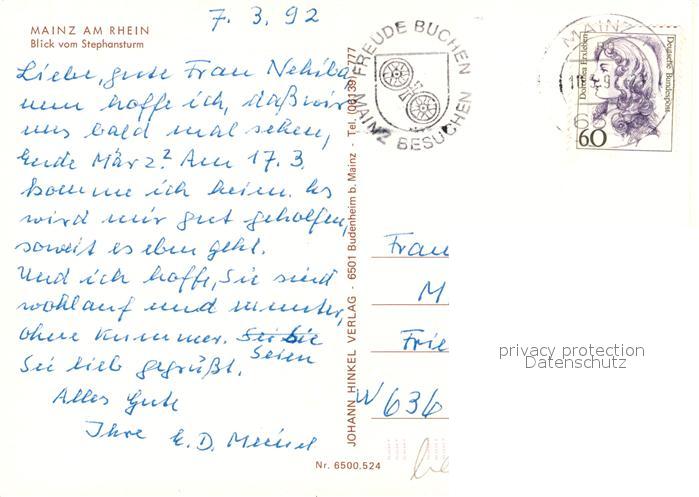 7. 3. 92
MAINZ AM RHEIN
Blick vom Stephansturm
Liebe, gute Frau Nehiba
nun hoffe ich, daß wir
uns bald mal sehen,
Ende März? Am 17. 3.
komme ich heim. Es
wird mir gut geholfen,
soweit es eben geht.
Und ich hoffe, Sie sind
wohlauf und munter,
ohne Kummer. Sei Sie
Seien
Sei lieb gegrüßt.
Alles Gute
Ihre E. D.
JOHANN HINKEL VERLAG - 6501 Budenheim b. Mainz - Tel. (06139)
Nr. 6500.524
FREUDE BUCHEN
MAINZ BESUCHEN
MAINZ
Dorothea Erxleben
Deutsche Bundespost
60
Frau
M
Frie
W 636
privacy protection
Datenschutz